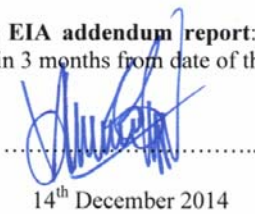 EIA addendum report:
in 3 months from date of th
14th December 2014